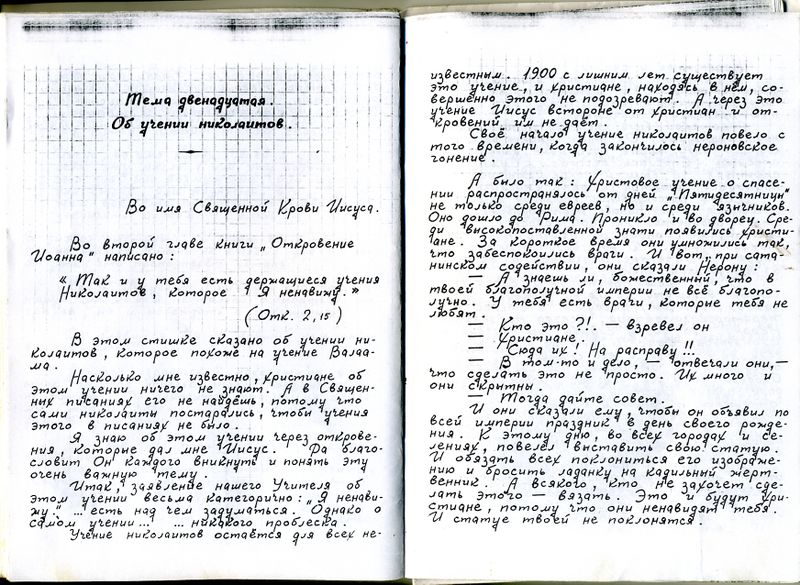 Тема двенадцатая.
Об учении николаитов.
Во имя Священной Крови Иисуса.
Во второй главе книги „Откровение
Иоанна" написано:
« Так и у тебя есть держащиеся учения
Николаитов, которое Я ненавижу. »
(Отк. 2,15)
В этом стишке сказано об учении ни-
колаитов, которое похоже на учение Валаа-
ма.
Насколько мне известно, христиане об
этом учении ничего не знают. А в Священ-
ных писаниях его не найдёшь, потому что
сами николаиты постарались, чтобы учения
этого в писаниях не было.
Я знаю об этом учении через открове-
ния, которые дал мне Иисус. Да благо-
словит Он каждого вникнуть и понять эту
очень важную тему.
Итак, заявление нашего Учителя об
этом учении весьма категорично: „Я ненави-
жу." ... есть над чем задуматься. Однако о
самом учении... ... никакого проблеска.
Учение николаитов остаётся для всех не-
известным. 1900 с лишним лет существует
это учение, и христиане, находясь в нём, со-
вершенно этого не подозревают. А через это
учение Иисус встороне от христиан и от-
кровений им не даёт.
Своё начало учение николаитов повело с
того времени, когда закончилось нероновское
гонение.
А было так: Христовое учение о спасе-
нии распространялось от дней „Пятидесятницы"
не только среди евреев, но и среди язычников.
Оно дошло до Рима. Проникло и во дворец. Сре-
ди высокопоставленной знати появились христи-
ане. За короткое время они умножились так,
что забеспокоились враги. И вот, при сата-
нинском содействии, они сказали Нерону:
— А знаешь ли, божественный, что в
твоей благополучной империи не всё благопо-
лучно. У тебя есть враги, которые тебя не
любят.
— Кто это?!. — взревел он
— Христиане.
— Сюда их! На расправу!!!
— В том-то и дело, — отвечали они, —
что сделать это не просто. Их много и
они скрытны.
— Тогда дайте совет.
И они сказали ему, чтобы он объявил по
всей империи праздник в день своего рожде-
ния. К этому дню, во всех городах и се-
лениях, повелел выставить свою статую.
И обязать всех поклониться его изображе-
нию и бросить ладанку на кадильный жерт-
венник. А всякого, кто не захочет сде-
лать этого — вязать. Это и будут хри-
стиане, потому что они ненавидят тебя.
И статуе твоей не поклонятся.